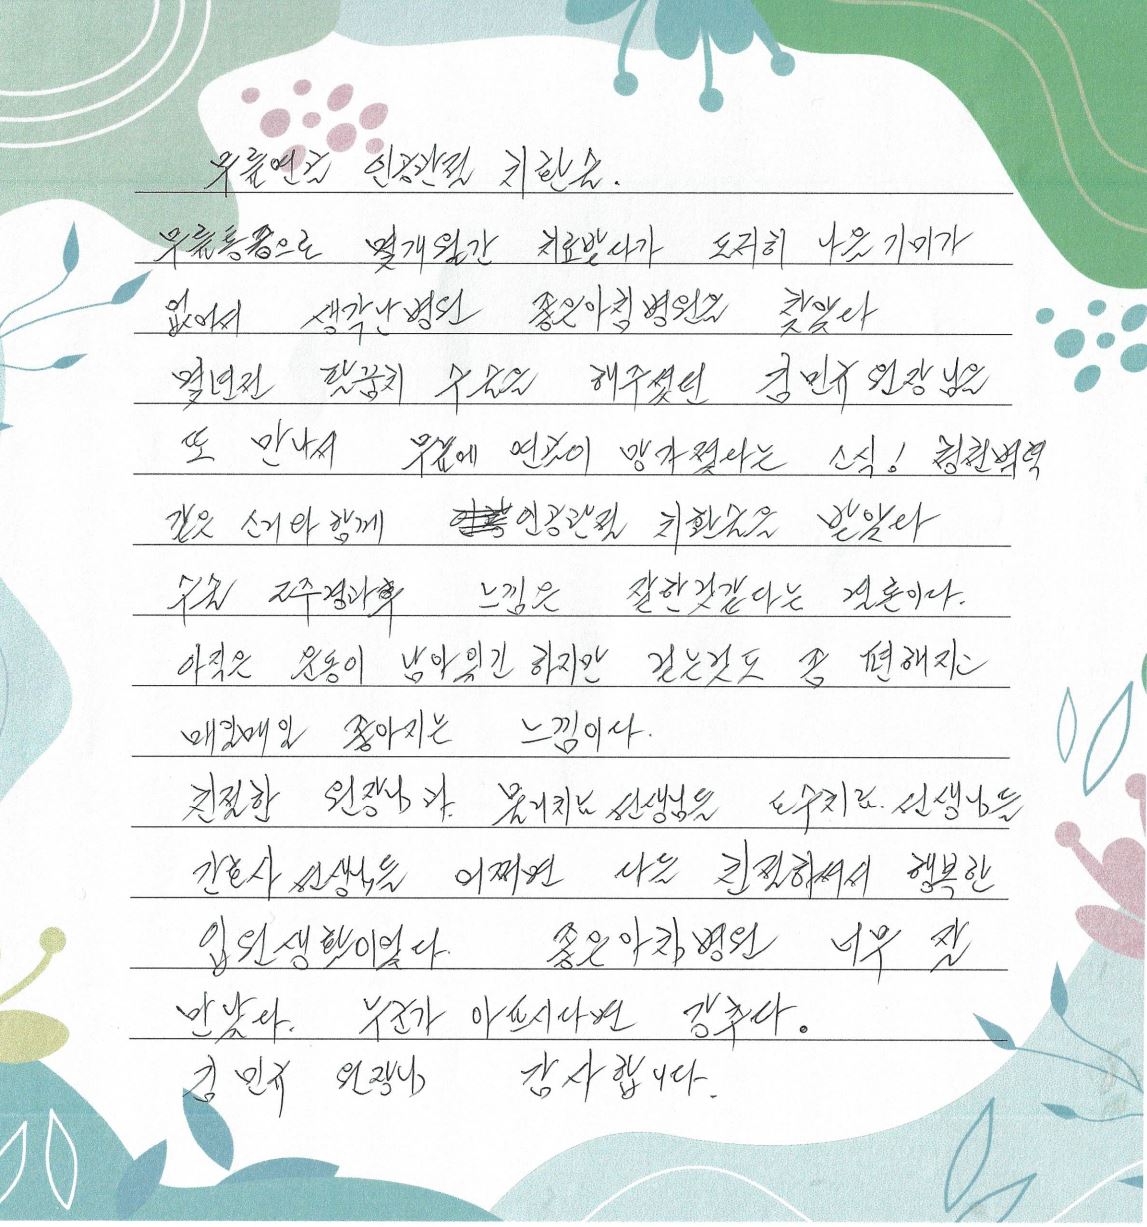 무릎연골 인공관절 치환술.
무릎통증으로 몇개월간 치료받다가 도저히 나을기미가
없어서 생각난병원 좋은아침병원을 찾았다
몇년전 팔꿈치 수술을 해주셨던 김민규 원장님을
또 만나서 무릎에 연골이 망가졌다는 소식! 청천벽력
같은 소리와함께 인공관절 치환술을 받았다
수술 2주경과후 느낌은 잘한것같다는 결론이다.
아직은 운동이 남아있긴 하지만 걷는것도 좀 편해지는
매일매일 좋아지는 느낌이다.
친절한 원장님과. 물리치료 선생님들 도수치료. 선생님들
간호사 선생님들 어쩌면 다들 친절하셔서 행복한
입원생활이였다. 좋은아침병원 너무 잘
만났다. 누군가 아프시다면 강추다.
김민규 원장님 감사합니다.